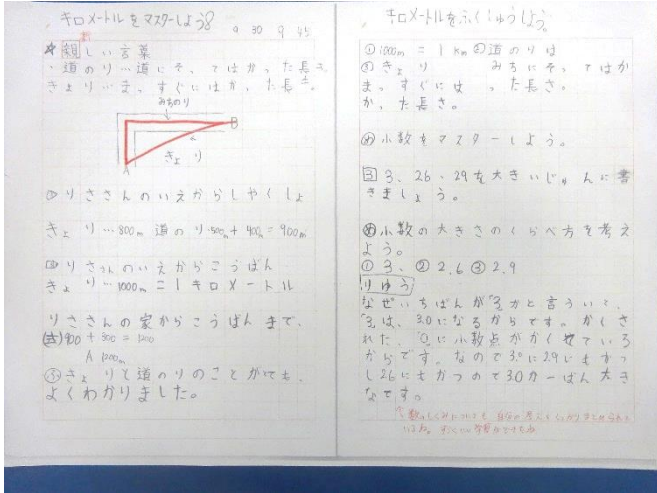 キロメートルをマスターしよう8
9 30 9 45
新
☆親しい言葉
・道のり…道にそってはかった長さ
きょり…ま、すぐにはか、た長さ
みちのり
B
きょり
A
りささんのいえからしやくしょ
きょり…800m 道のり500m+400m=900m
りささんのいえからこうばん
きょり…1000m=1キロメートル
りささんの家からこうばんまで、
(式)900+300=1200
A 1200m
(ふ)きょりと道のりのことがとても、
よくわかりました。
キロメートルをふくしゅうしよう。
①1000m=1km②道のりは
③きょり みちにそってはか
ま。すぐには った長さ。
か、た長さ。
(め)小数をマスターしよう。
3 3、26、29を大きいじゅんに書
きましょう。
(め)小数の大きさのくらべ方を考え
よう。
①3、②2.6③2.9
りゆう
なぜいちばんが3かと言うと、
3は、3.0になるからです。かくさ
れた、0に小数点がかくせている
からです。なので3.0に2.9にもかつ
し26にもかつので3.0が一ばん大き
なです。